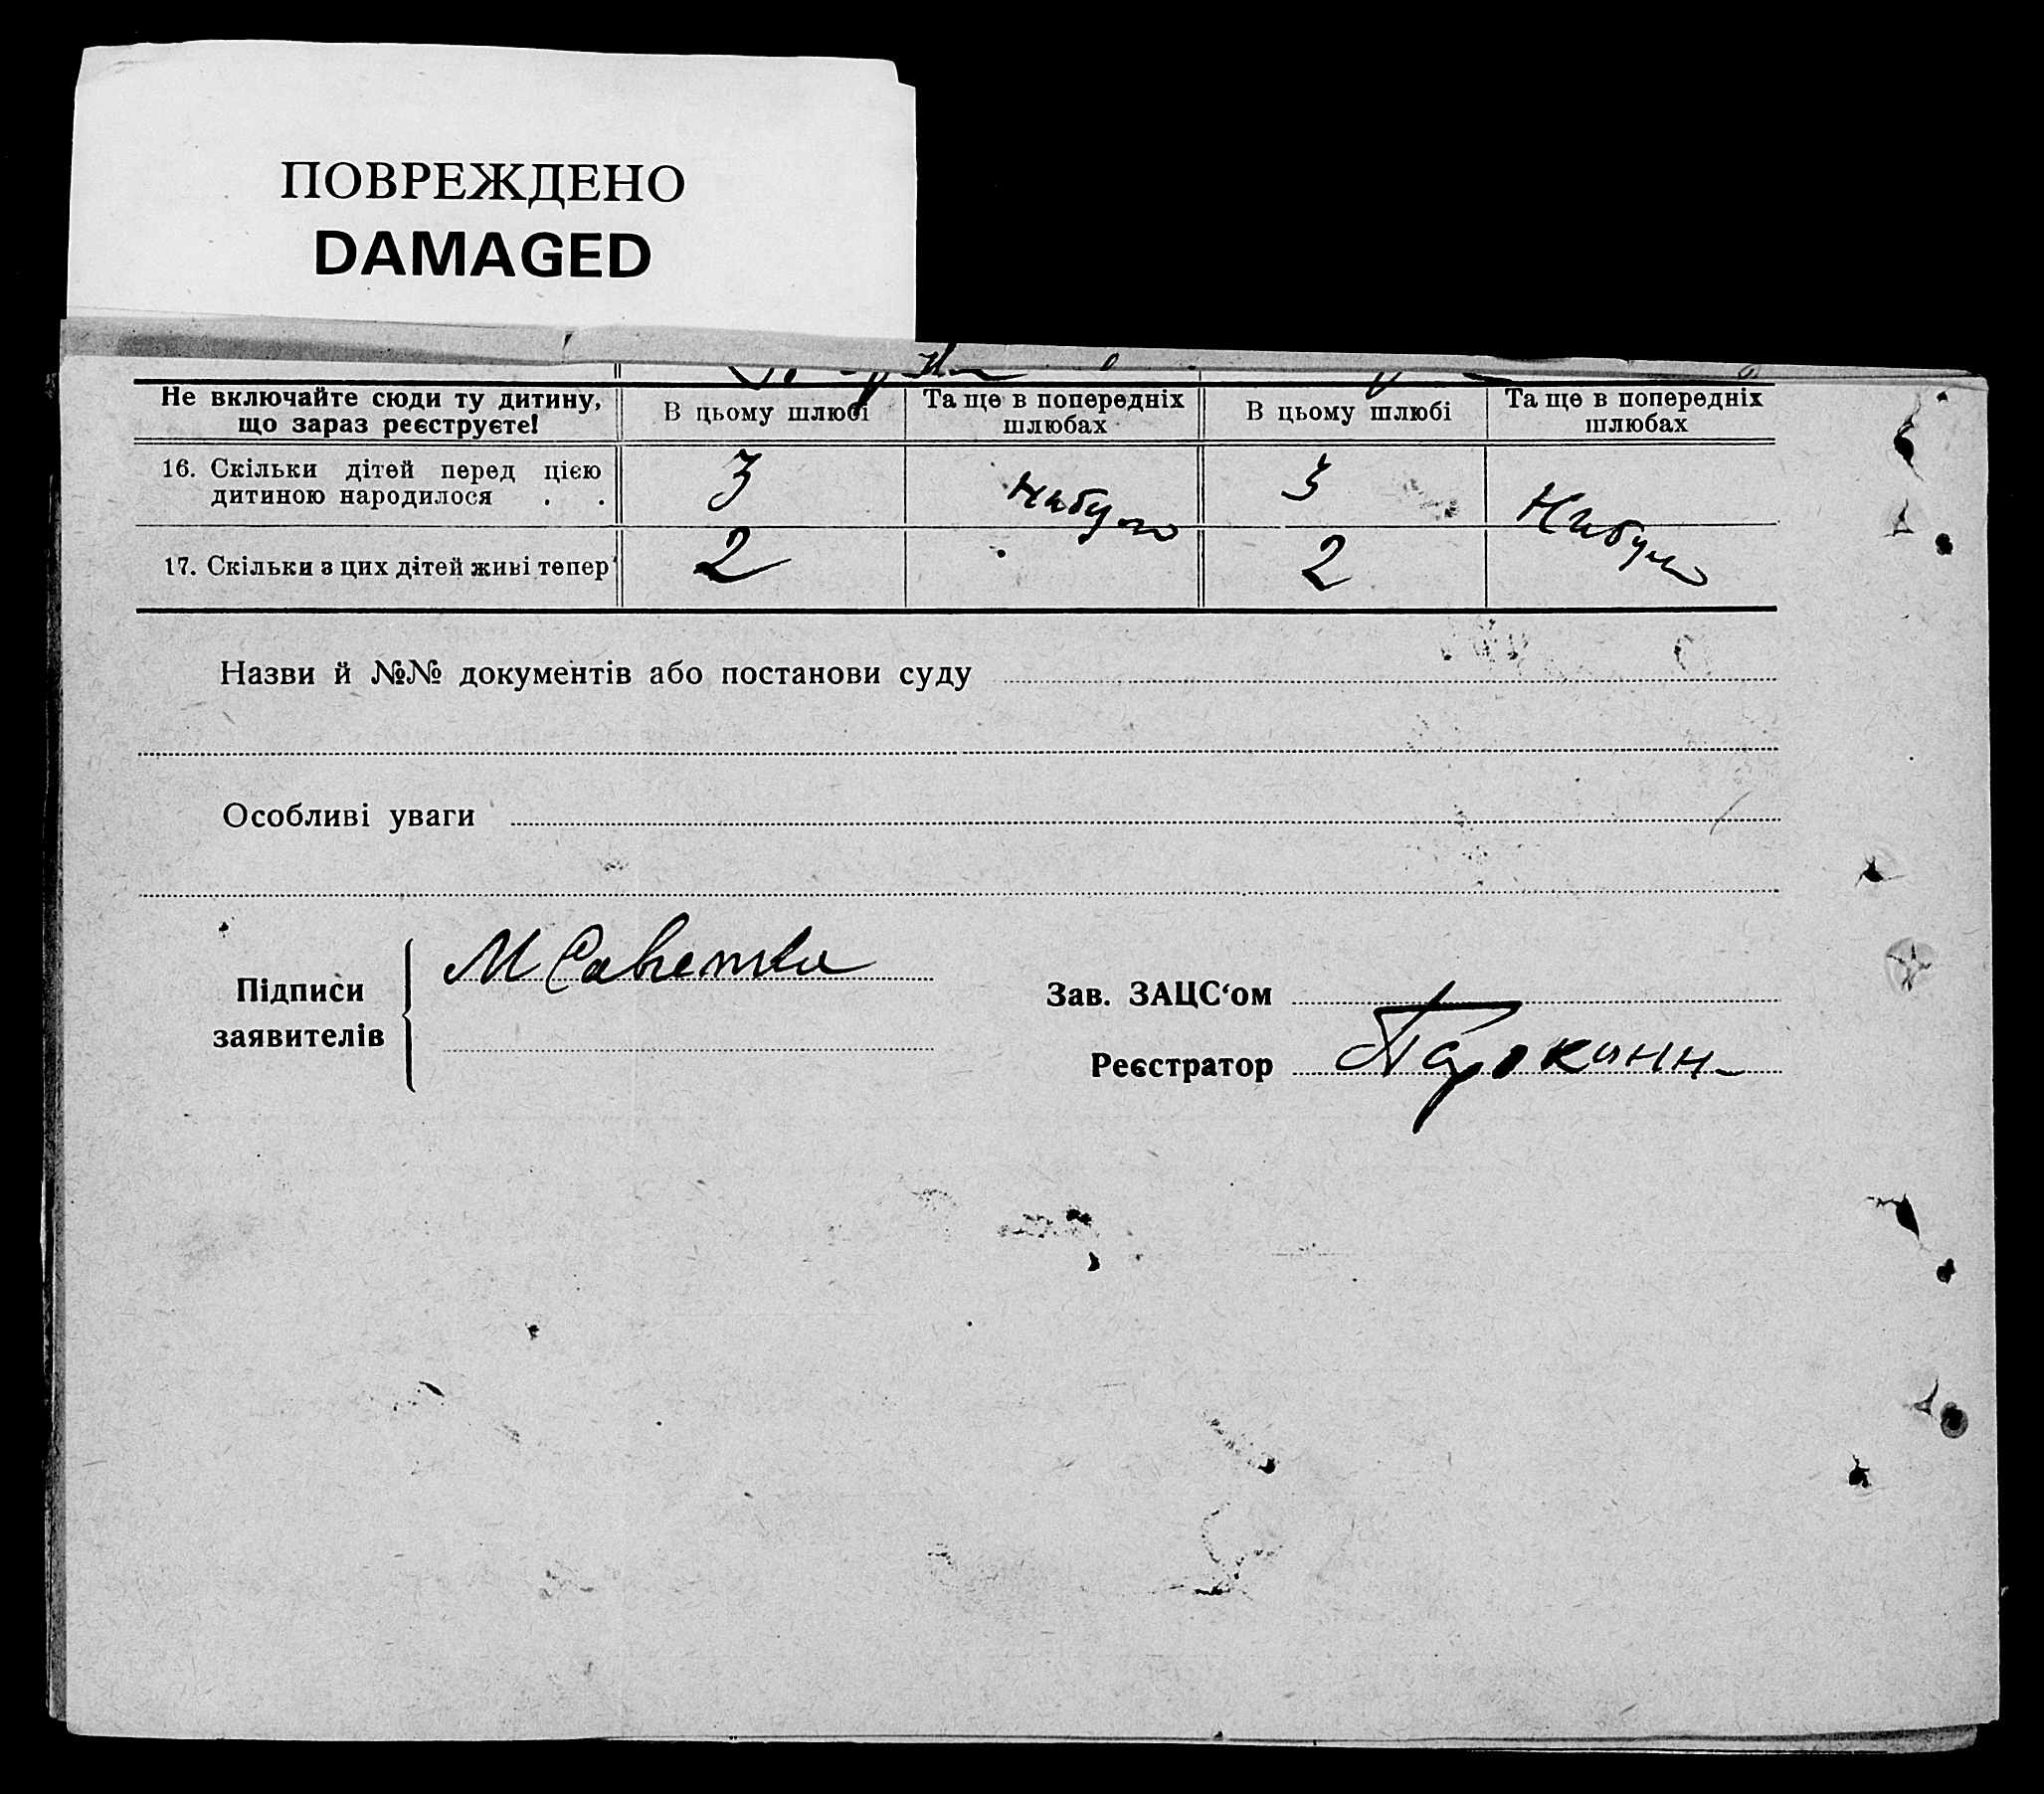 ПОВРЕЖДЕНО
DAMAGED
Не включайте сюди ту дитину, що зараз реєструєте!
В цьому шлюбі
Та ще в попередніх шлюбах
В цьому шлюбі
Та ще в попередніх шлюбах
16. Скільки дітей перед цією
дитиною народилося . .
3
Небуло
3
Небуло
17. Скільки з цих дітей живі тепер
2
2
Назви й №№ документів або постанови суду
Особливі уваги
Підписи
заявителів
М
Зав. ЗАЦС‘ом
Реєстратор